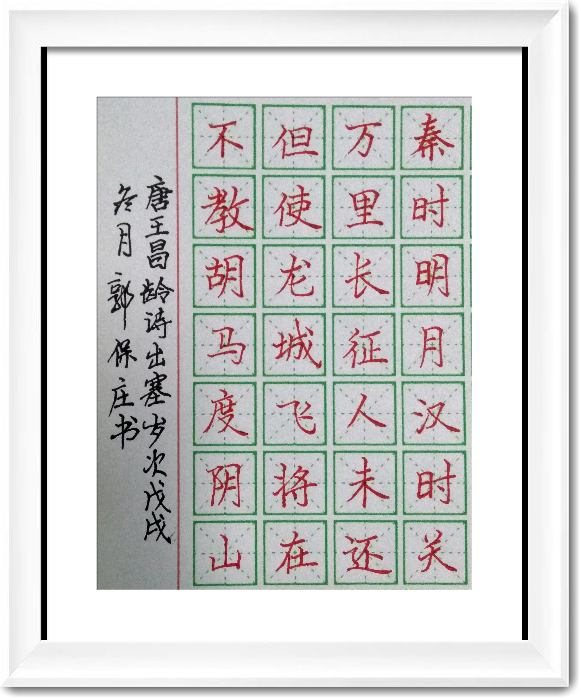 秦时明月汉时关
万里长征人未还
但使龙城飞将在
不教胡马度阴山
唐王昌龄诗出塞岁次戊戌
冬月郭保庄书